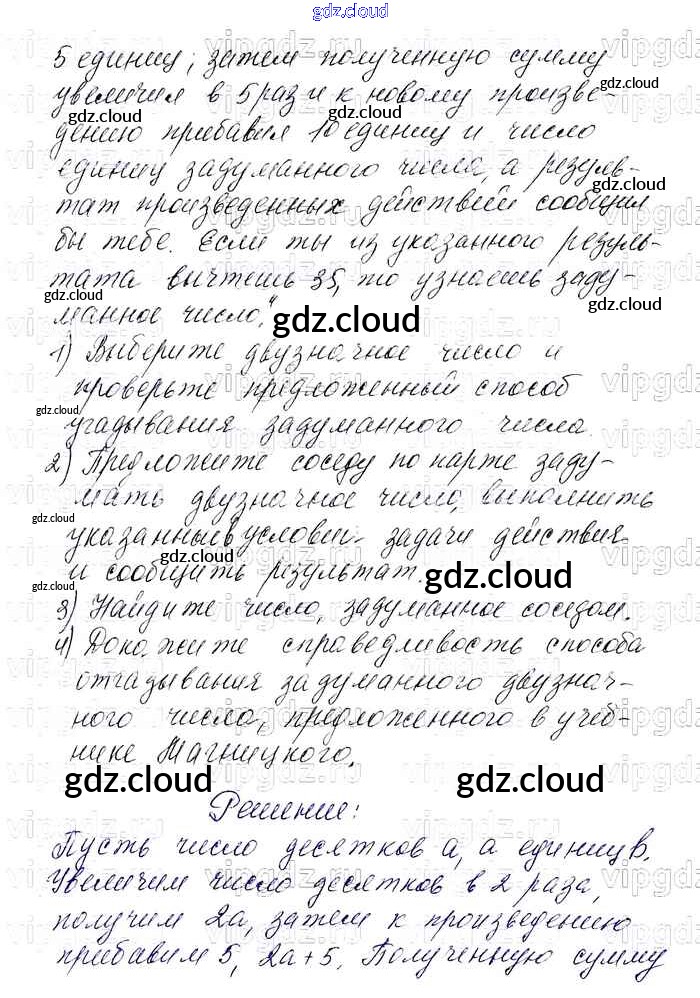 gdz.cloud
5 единиц; затем полученную сумму
увеличил в 5 раз и к новому произве-
дению прибавил 10 единиц и число
единиц задуманного числа, а резуль-
тат произведенных действий сообщил
бы тебе. Если ты из указанного резуль-
тата вычтешь 35, то узнаешь заду-
манное число."
gdz.cloud
1) Выберите двузначное число и
проверьте предложенный способ
угадывания задуманного числа.
2) Предложите соседу по парте заду-
мать двузначное число, выполнить
указанные в условии задачи действия
и сообщить результат.
gdz.cloud
3) Найдите число, задуманное соседом.
4) Докажите справедливость способа
отгадывания задуманного двузнач-
ного числа, предложенного в учеб-
нике Магницкого.
gdz.cloud gdz.cloud
Решение:
Пусть число десятков а, а единиц В.
Увеличим число десятков в 2 раза,
получим 2а, затем к произведению
прибавим 5, 2а+5. Полученную сумму